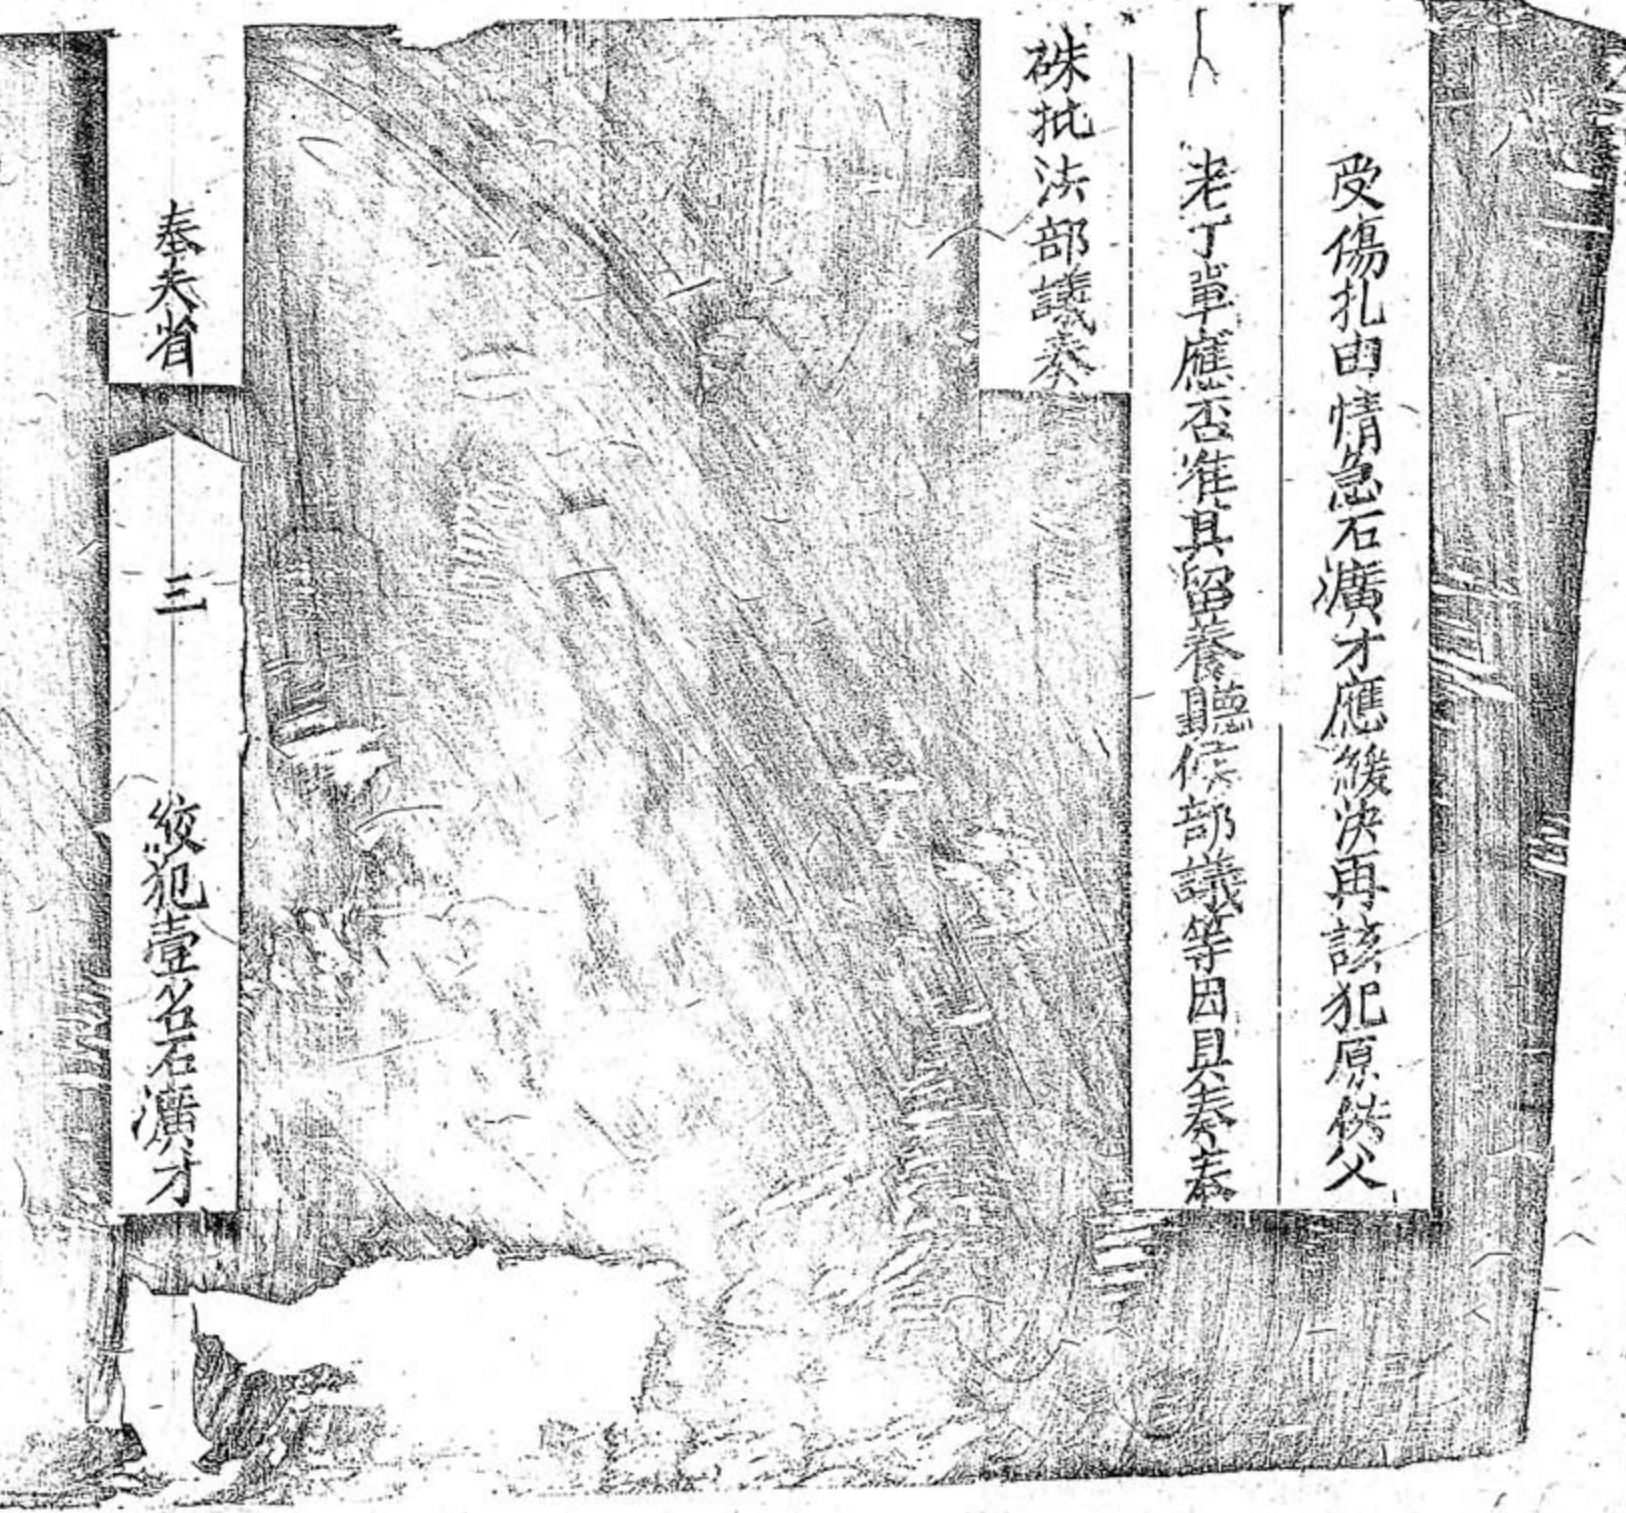 受傷扎由情急石瀇才應緩決再該犯原供父
老丁單應否准其留養聽候部議等因具奏奉
硃批法部議奏
奉天省
三 絞犯壹名石瀇才